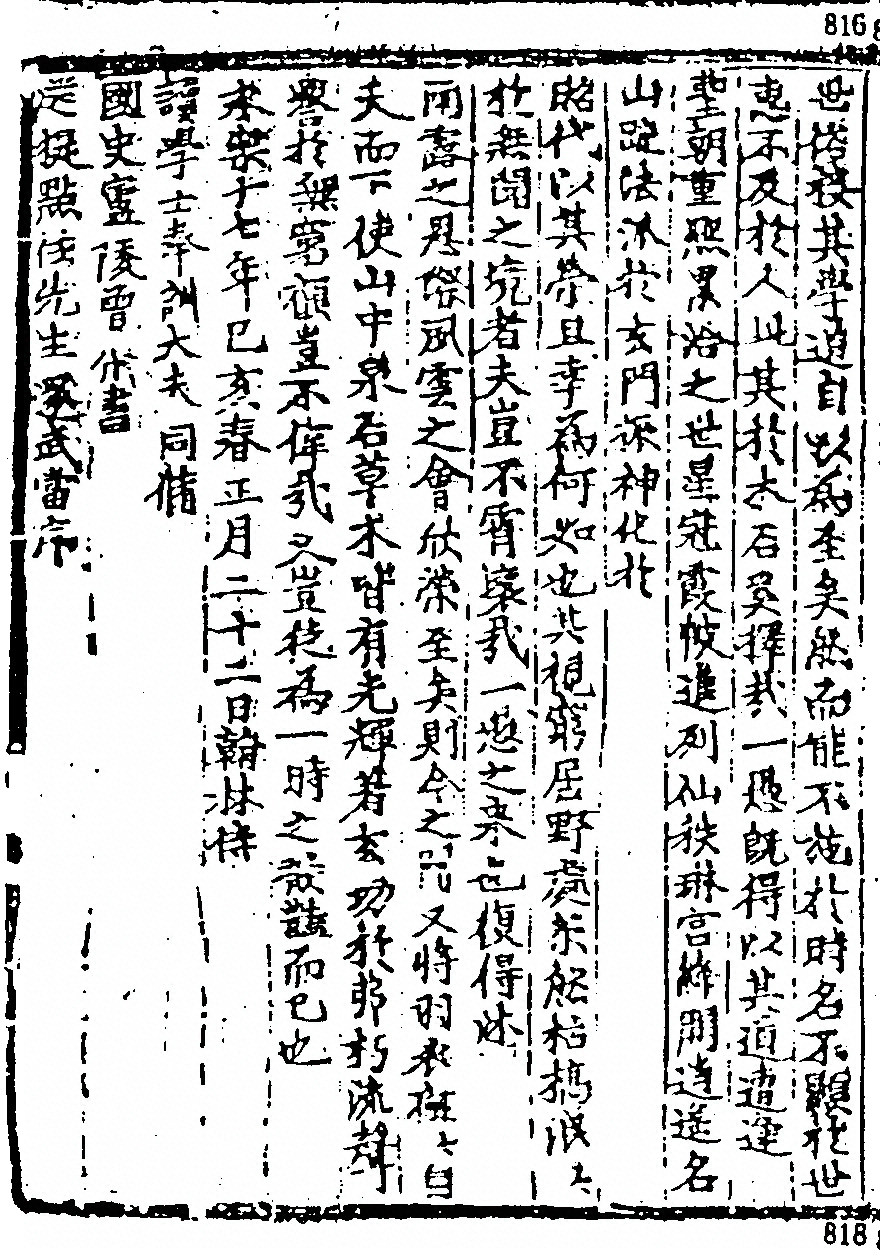 816
世俗役其學過自以為至矣然而能不施於時名不顯於世
惠不及於人此其於木石奚擇哉一愚既得以其道遭逢
聖朝重熙累洽之世星冠霞帔進列仙秩琳宮絳闕逍遙名
山蹤法派於玄門添神化於
昭代以其榮且幸為何如也其視窮居野處形骸枯槁泯々
於無聞之境者夫豈不霄壤哉一愚之來也復得沐
雨露之恩際風雲之會欣榮至矣則今之又將羽衣々自
夫而下使山中泉石草木皆有光輝若玄功於耶朽流聲
譽於無窮顧豈不偉哉又豈徒為一時之而已也
永樂十七年己亥春正月二十二日翰林侍
讀學士奉訓大夫同脩
國史廬陵曾作書
送提點任先生還武當序
818